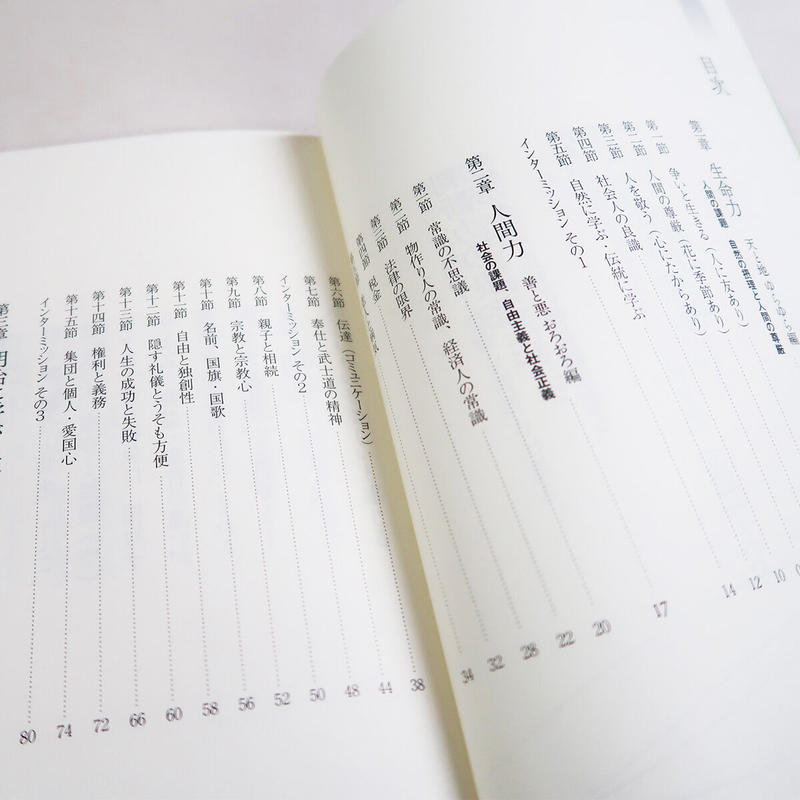 目次
第一章 生命力 天と地 ゆらゆら編
人間の課題 自然の摂理と人間の尊厳
第一節 争いと生きる(人に友あり)
第二節 人間の尊厳(花に季節あり)
第三節 人を敬う(心にたからあり) 10
第四節 社会人の良識 12
第五節 自然に学ぶ・伝統に学ぶ 14
インターミッション その1 17
第二章 人間力 善と悪 おろおろ編
社会の課題、自由主義と社会正義
第一節 常識の不思議 20
第二節 物作り人の常識、経済人の常識 22
第三節 法律の限界 28
第四節 税金 32
34
第六節 伝達(コミュニケーション) 38
第七節 奉仕と武士道の精神 44
インターミッション その2 48
第八節 親子と相続 50
第九節 宗教と宗教心 52
第十節 名前、国旗・国歌 56
第十一節 自由と独創性 58
第十二節 隠す礼儀とうそも方便 60
第十三節 人生の成功と失敗 66
第十四節 権利と義務 72
第十五節 集団と個人・愛国心 74
インターミッション その3 80
第三章